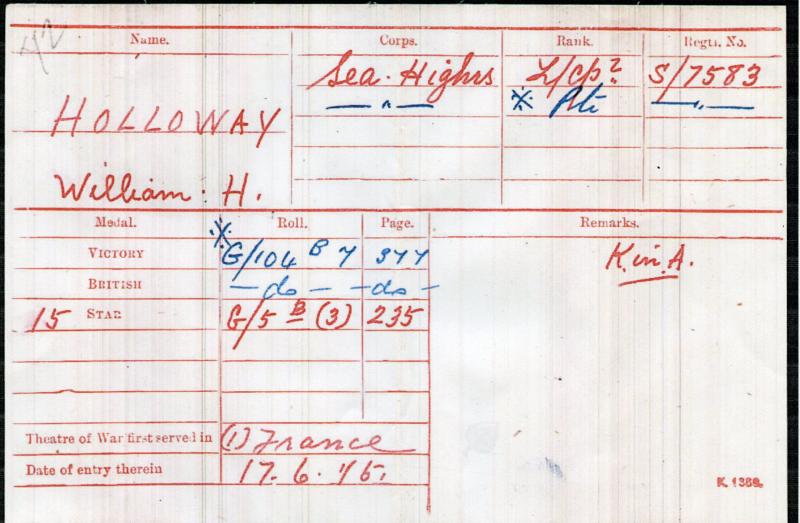 Name. Corps. Rank. Regtl. No.
Sea. Highrs L/Cpl. S/7583
— " — ※ Pte — " —
HOLLOWAY
William. H.
Medal. Roll. Page. Remarks.
VICTORY ※ G/104 B 7 377 K. in. A.
BRITISH — do — — do —
15 STAR G/5 B (3) 235
Theatre of War first served in (1) France
Date of entry therein 17. 6. 15.
K. 1380.